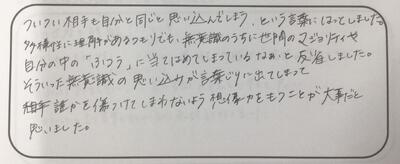 ついつい相手も自分と同じと思い込んでしまう、という言葉にはっとしました。
多様性に理解があるつもりでも、無意識のうちに世間のマジョリティや
自分の中の「ふつう」に当てはめてしまっているなぁと反省しました。
そういった無意識の思い込みが言葉じりに出てしまって
誰かを傷つけてしまわないよう想像力をもつことが大事だと
思いました。